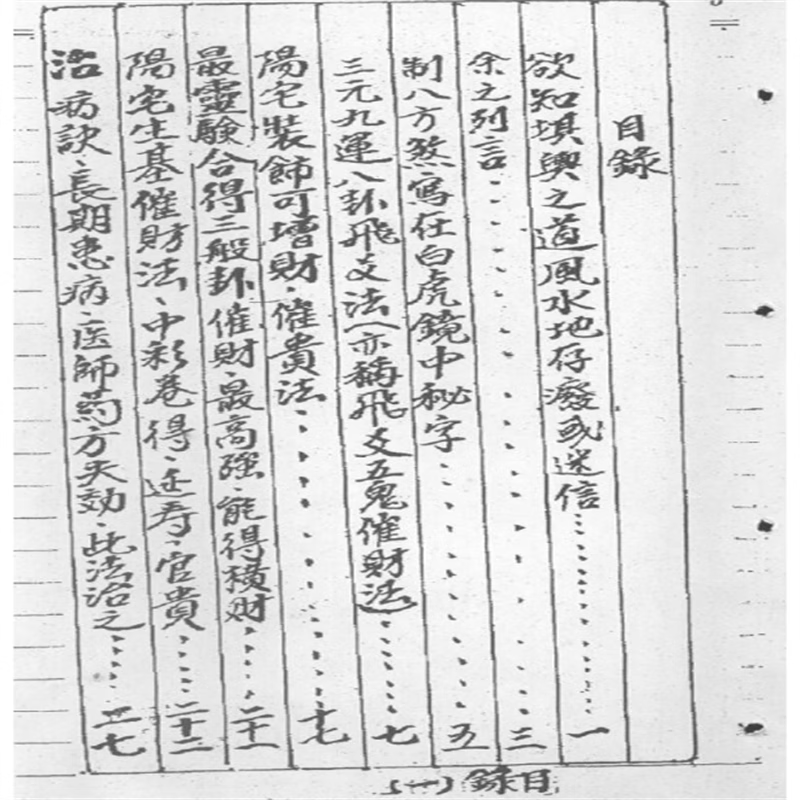 目錄
欲知堪輿之道風水地存廢或迷信………一
余之列言………三
制八方煞寫在白虎鏡中秘字………五
三元九運八卦飛爻法(亦稱飛爻五鬼催財法………七
陽宅裝飾可增財、催貴法………十七
最靈驗合得三般卦催財、最高强、能得橫財………二十一
陽宅生基催財法、中彩卷得、延寿、官貴………二十二
治病訣、長期患病、医師药方失効、此法治之………二七
目錄(一)